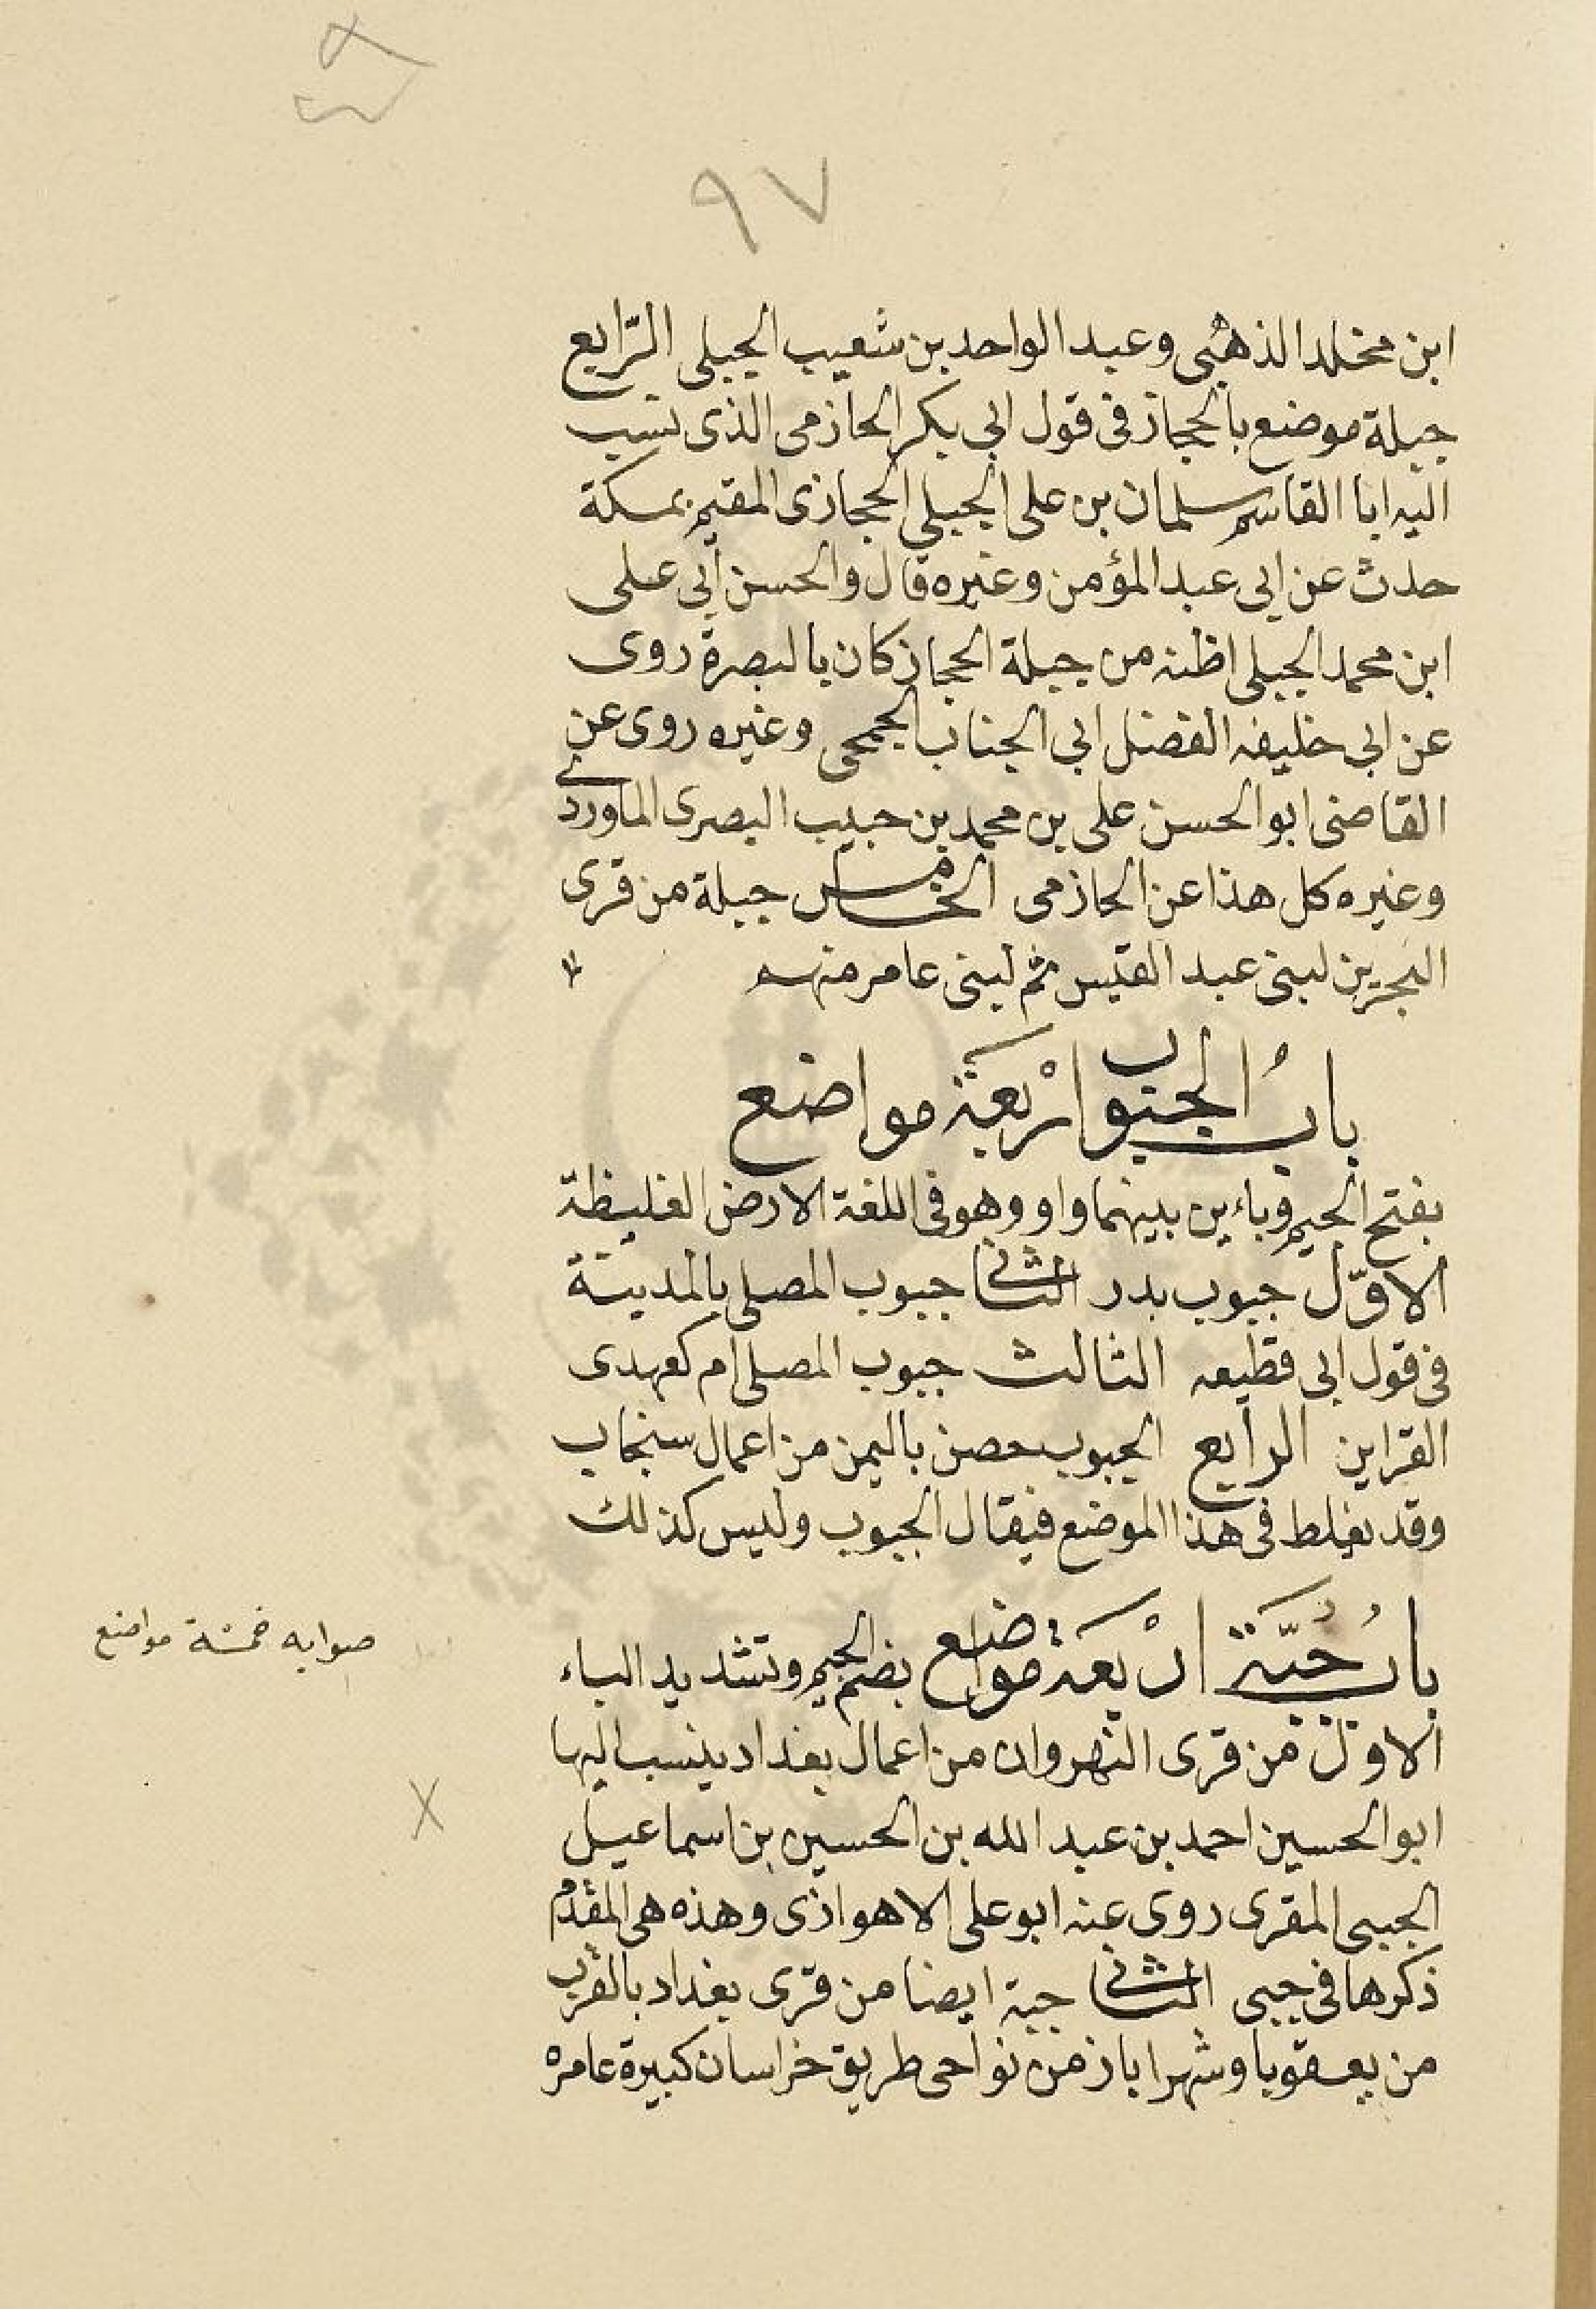 ٩٧
ابن مخلد الذهبى وعبد الواحد بن شعيب الجبلى الرّابع
جبلة موضع بالحجاز فى قول ابى بكر الحازمى الذى نسب
اليه ابا القاسم سلمان بن على الجبلى الحجازى المقيم بمكة
حدث عن ابى عبد المؤمن وغيره قال والحسن أبى على
ابن محمد الجبلى اظنه من جبلة الحجاز كان بالبصرة روى
عن ابى خليفه الفضل ابى الجناب الجمحى وغيره روى عن
القاضى ابو الحسن على بن محمد بن حبيب البصرى الماوردى
وغيره كل هذا عن الحازمى الخامس جبلة من قرى
البحرين لبنى عبد القيس ثم لبنى عامر منهم
بابُ الجبوب ارْبعَة مواضع
بفتح الجيم وباءين بينهما واو وهو فى اللغة الارض الغليظة
الاوّل جبوب بدر الثانى جبوب المصلى بالمدينة
فى قول ابى قطيعه الثالث جبوب المصلى ام كعهدى
القراين الرابع الجبوب حصن باليمن من اعمال سنجاب
وقد يغلط فى هذا الموضع فيقال الجبوب وليس كذلك
بابُ جُبَّة ارْبعَة مواضع بضم الجيم وتشديد الباء
صوابه خمسة مواضع
الاول من قرى النهروان من اعمال بغداد ينسب اليها
ابو الحسين احمد بن عبد الله بن الحسين بن اسماعيل
الجببى المقرى روى عنه ابو على الاهوازى وهذه هى المقدم
ذكرها فى جبى الثانى جبة ايضا من قرى بغداد بالقرب
من بعقوبا وشهراباز من نواحى طريق خراسان كبيرة عامره